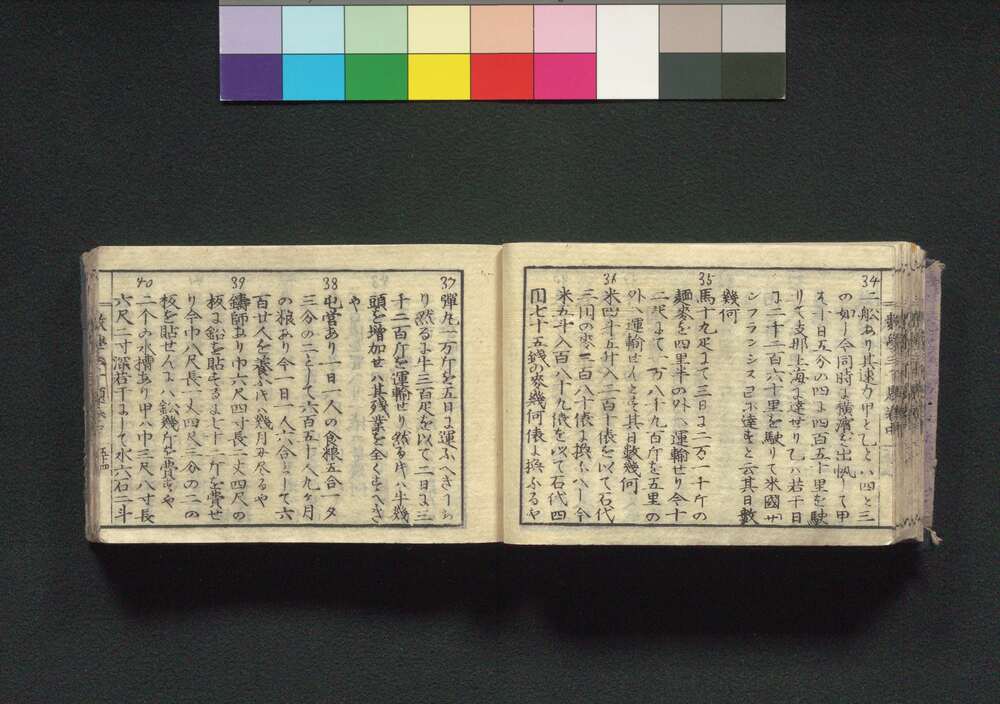 34
二舩あり其速力甲と乙とハ四と三
の如し今同時よ横濱を出帆して甲
ハ十日五分の四よ四百五十里を駛
りて支那上海よ達せり乙ハ若干日
よ二千二百六十里を駛りて米國サ
ンフランシスコよ達セと云其日數
幾何
35
馬十九疋よて三日よ二万一千斤の
麺麥を四里半の外へ運輸せり今十
二疋よて一万八千九百斤を五里の
外へ運輸せんとキ其日數幾何
36
米四斗五升入二百十俵を以て石代
三円の麥二百八十俵よ換ふへし今
米五斗入百八十九俵を以て石代四
円七十五錢の麥幾何俵よ換ふるや
37
彈丸二万斤を五日よ運ふへき
り然るよ牛三百疋を以て二日よ三
千二百斤を運輸せり然る片ハ牛幾
頭を増加せハ其残業を全くすへき
や
38
屯営あり一日一人の食根五合一夕
三分の二として六百五十人九ヶ月
の根あり今一日一人六合として六
百廿人を養ふ片ハ幾月よ尽るや
39
鑄師あり巾六尺四寸長二丈四尺の
板よ鉛を貼せるよ七十二斤を費せ
り今巾八尺長一丈四尺三分の二の
板を貼せんよハ鉛幾斤を費すや
40
二个の水槽あり甲ハ巾三尺八寸長
六尺二寸深若干よして水六石二斗